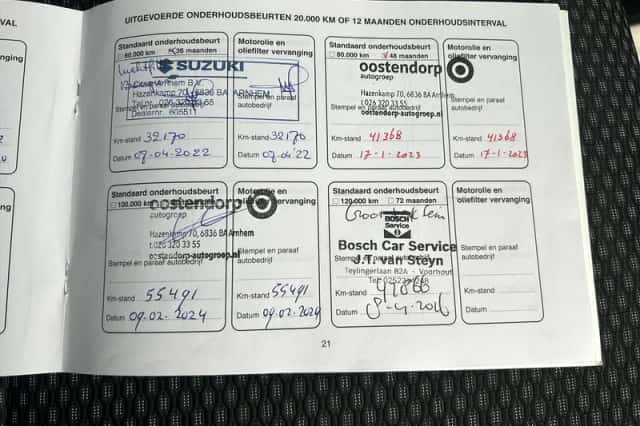 UITGEVOERDE ONDERHOUDSBEURTEN 20.000 KM OF 12 MAANDEN ONDERHOUDSINTERVAL
Standaard onderhoudsbeurt
60.000 km 36 maanden
SUZUKI
Hazenkamp 70, 6836 BA ARNHEM
Stempel en paraaf
autobedrijf
Dealernr. 605511
Km-stand 32170
Datum 07-04-2022
Motorolie en
oliefilter vervanging
Stempel en paraaf
autobedrijf
Km-stand 32170
Datum 07-04-'22
Standaard onderhoudsbeurt
80.000 km 48 maanden
oostendorp
autogroep
Hazenkamp 70, 6836 BA Arnhem
t.026 320 33 55
Stempel en paraaf
autobedrijf
oostendorp-autogroep.nl
Km-stand 41368
Datum 17-1-2023
Motorolie en
oliefilter vervanging
Stempel en paraaf
autobedrijf
Km-stand 41368
Datum 17-1-2023
Standaard onderhoudsbeurt
100.000 km
oostendorp
autogroep
Hazenkamp 70, 6836 BA Arnhem
t.026 320 33 55
oostendorp-autogroep.nl
Stempel en paraaf
autobedrijf
Km-stand 55491
Datum 09-02-2024
Motorolie en
oliefilter vervanging
Stempel en paraaf
autobedrijf
Km-stand 55491
Datum 09-02-2024
Standaard onderhoudsbeurt
120.000 km 72 maanden
BOSCH
Service
Bosch Car Service
J.T. van Steyn
Stempel en paraaf
autobedrijf
Teylingerlaan 82A - Voorhout
Km-stand
Datum
Motorolie en
oliefilter vervanging
Stempel en paraaf
autobedrijf
Km-stand
Datum
21